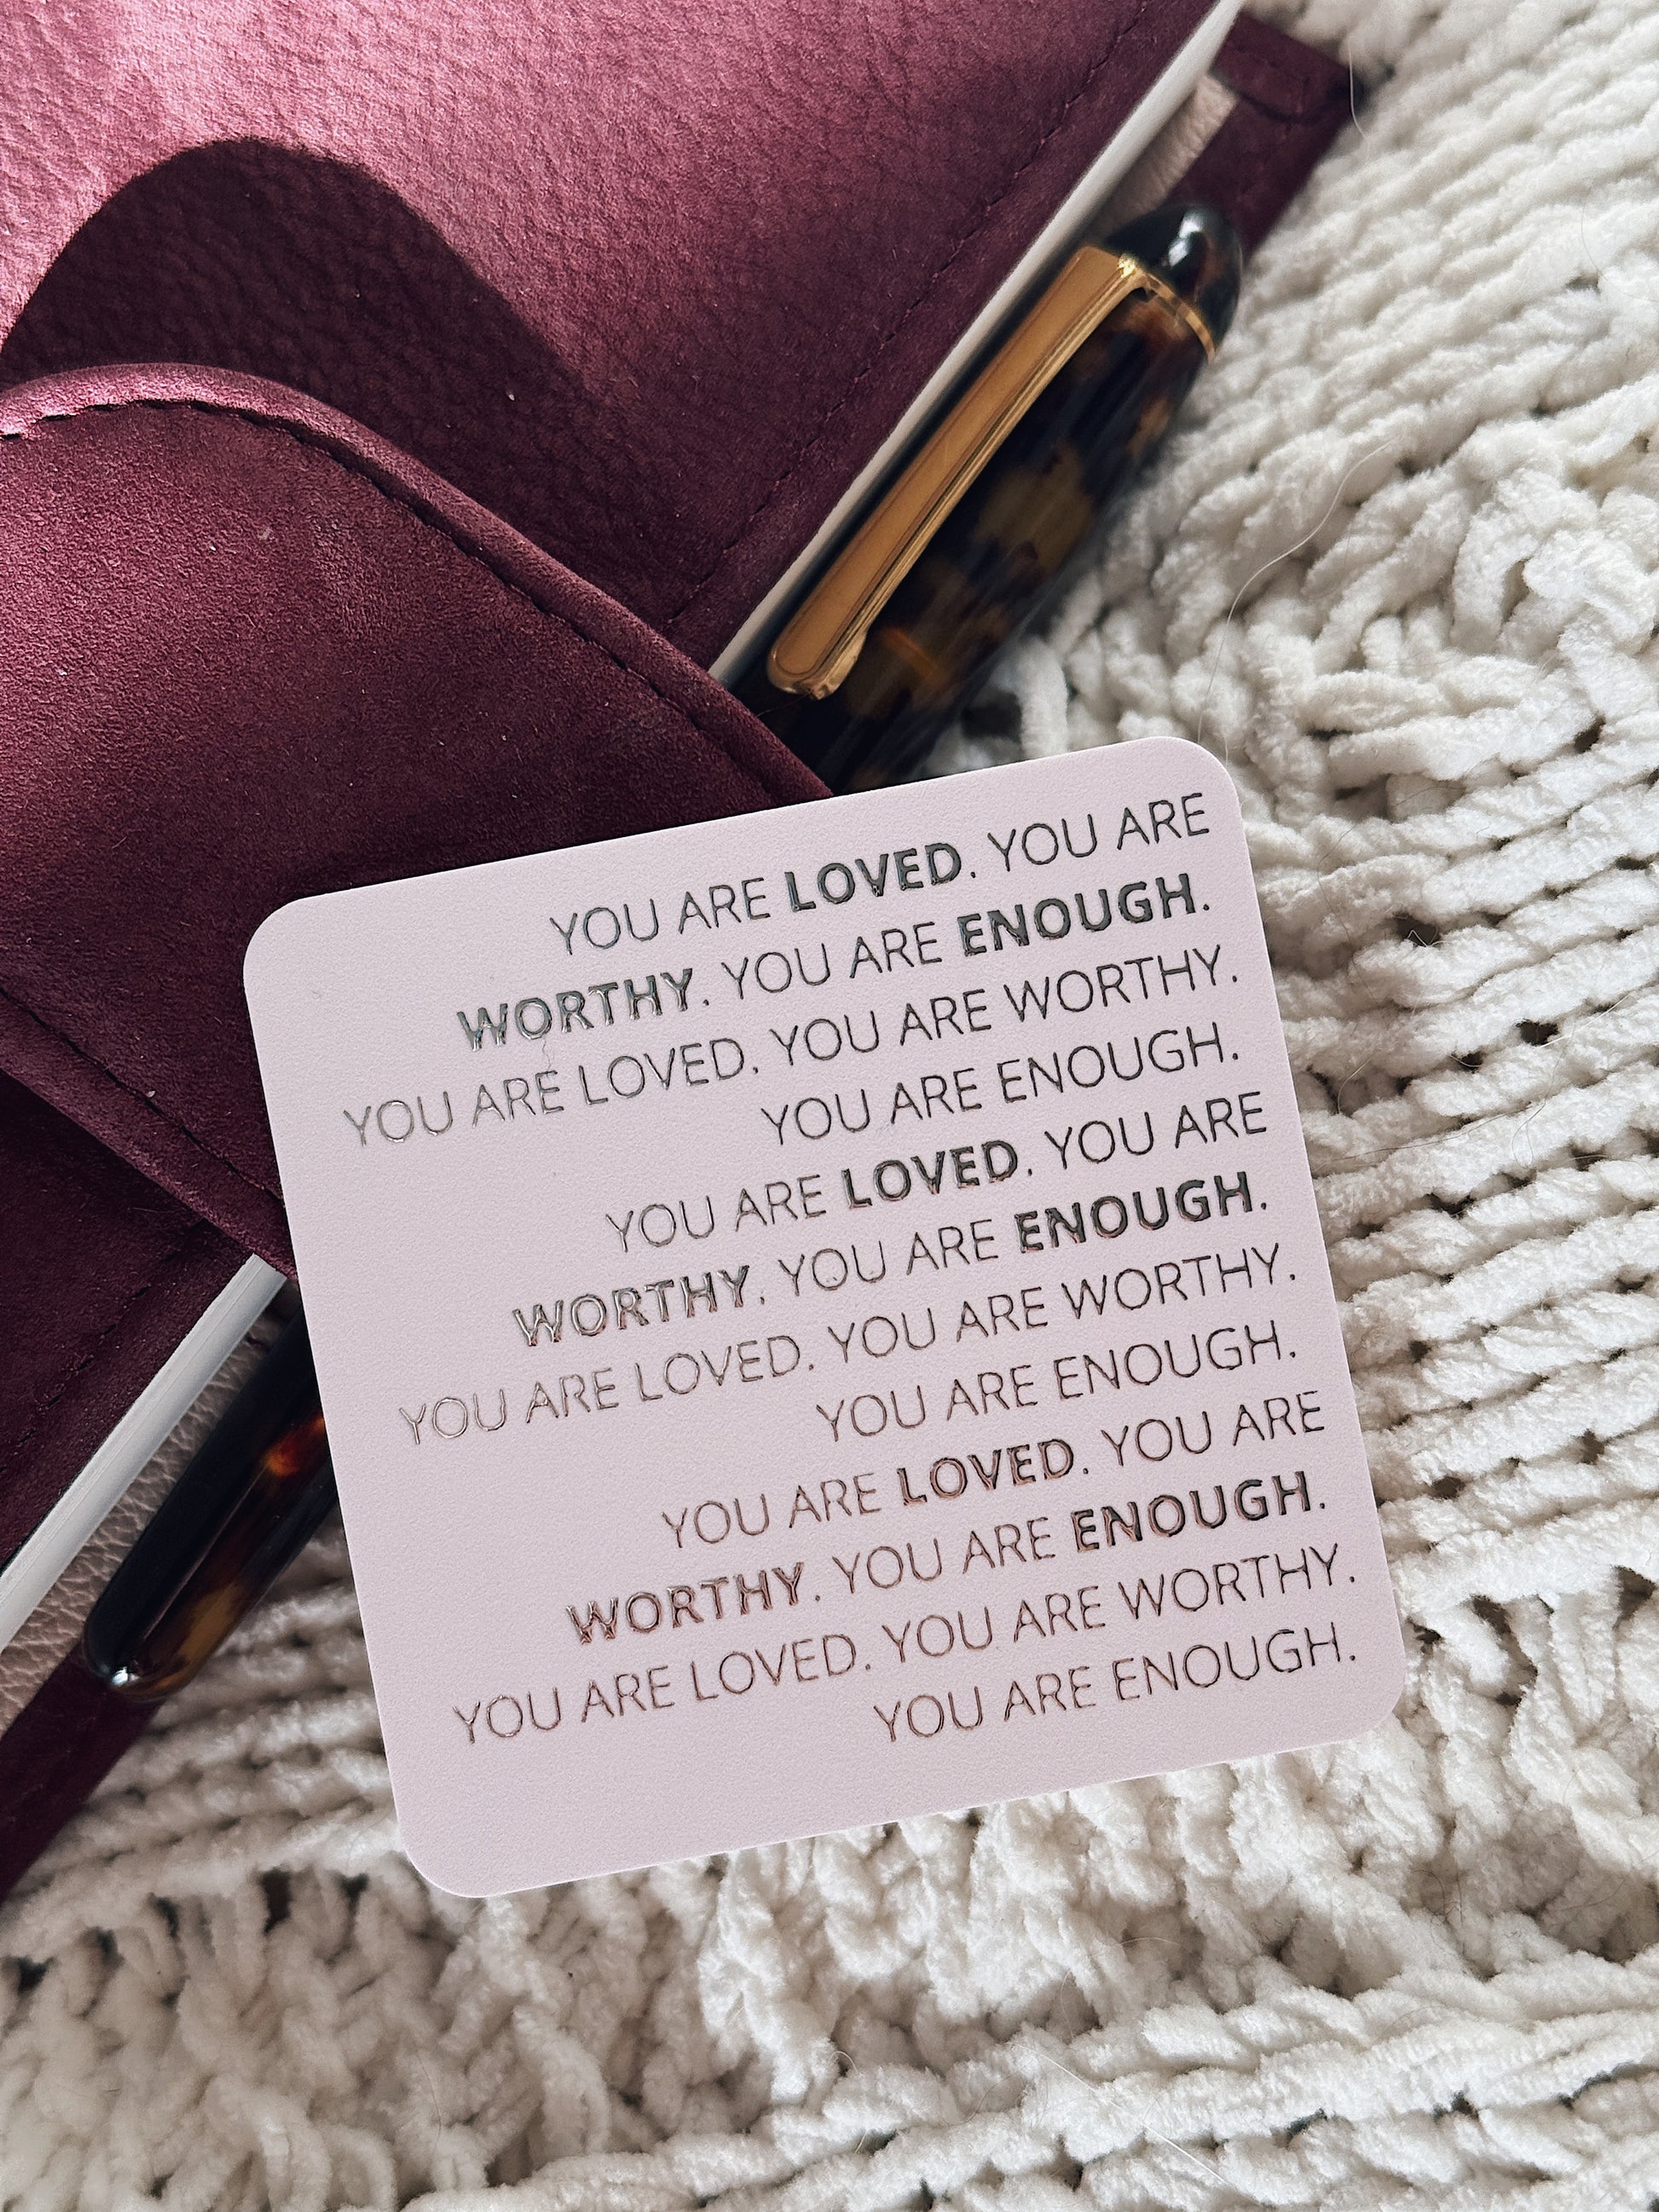 YOU ARE LOVED. YOU ARE
WORTHY. YOU ARE ENOUGH.
YOU ARE LOVED. YOU ARE WORTHY.
YOU ARE ENOUGH.
YOU ARE LOVED. YOU ARE
WORTHY. YOU ARE ENOUGH.
YOU ARE LOVED. YOU ARE WORTHY.
YOU ARE ENOUGH.
YOU ARE LOVED. YOU ARE
WORTHY. YOU ARE ENOUGH.
YOU ARE LOVED. YOU ARE WORTHY.
YOU ARE ENOUGH.